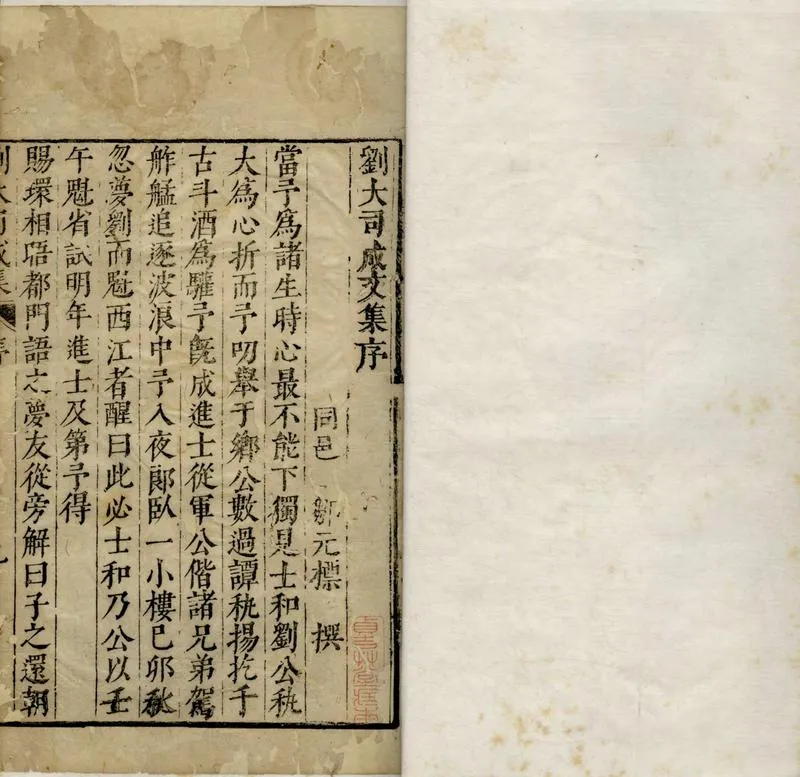 劉大司成文集序
同邑 鄒元標 撰
當予爲諸生時心最不能下獨見士和劉公秇
大爲心折而予叨舉于鄉公數過譚秇揚扢千
古斗酒爲驩予旣成進士從軍公偕諸兄弟駕
舴艋追逐波浪中予入夜郎臥一小樓己卯秋
忽夢劉而魁西江者醒曰此必士和乃公以壬
午魁省試明年進士及第予得
賜環相晤都門語之夢友從旁解曰子之還朝